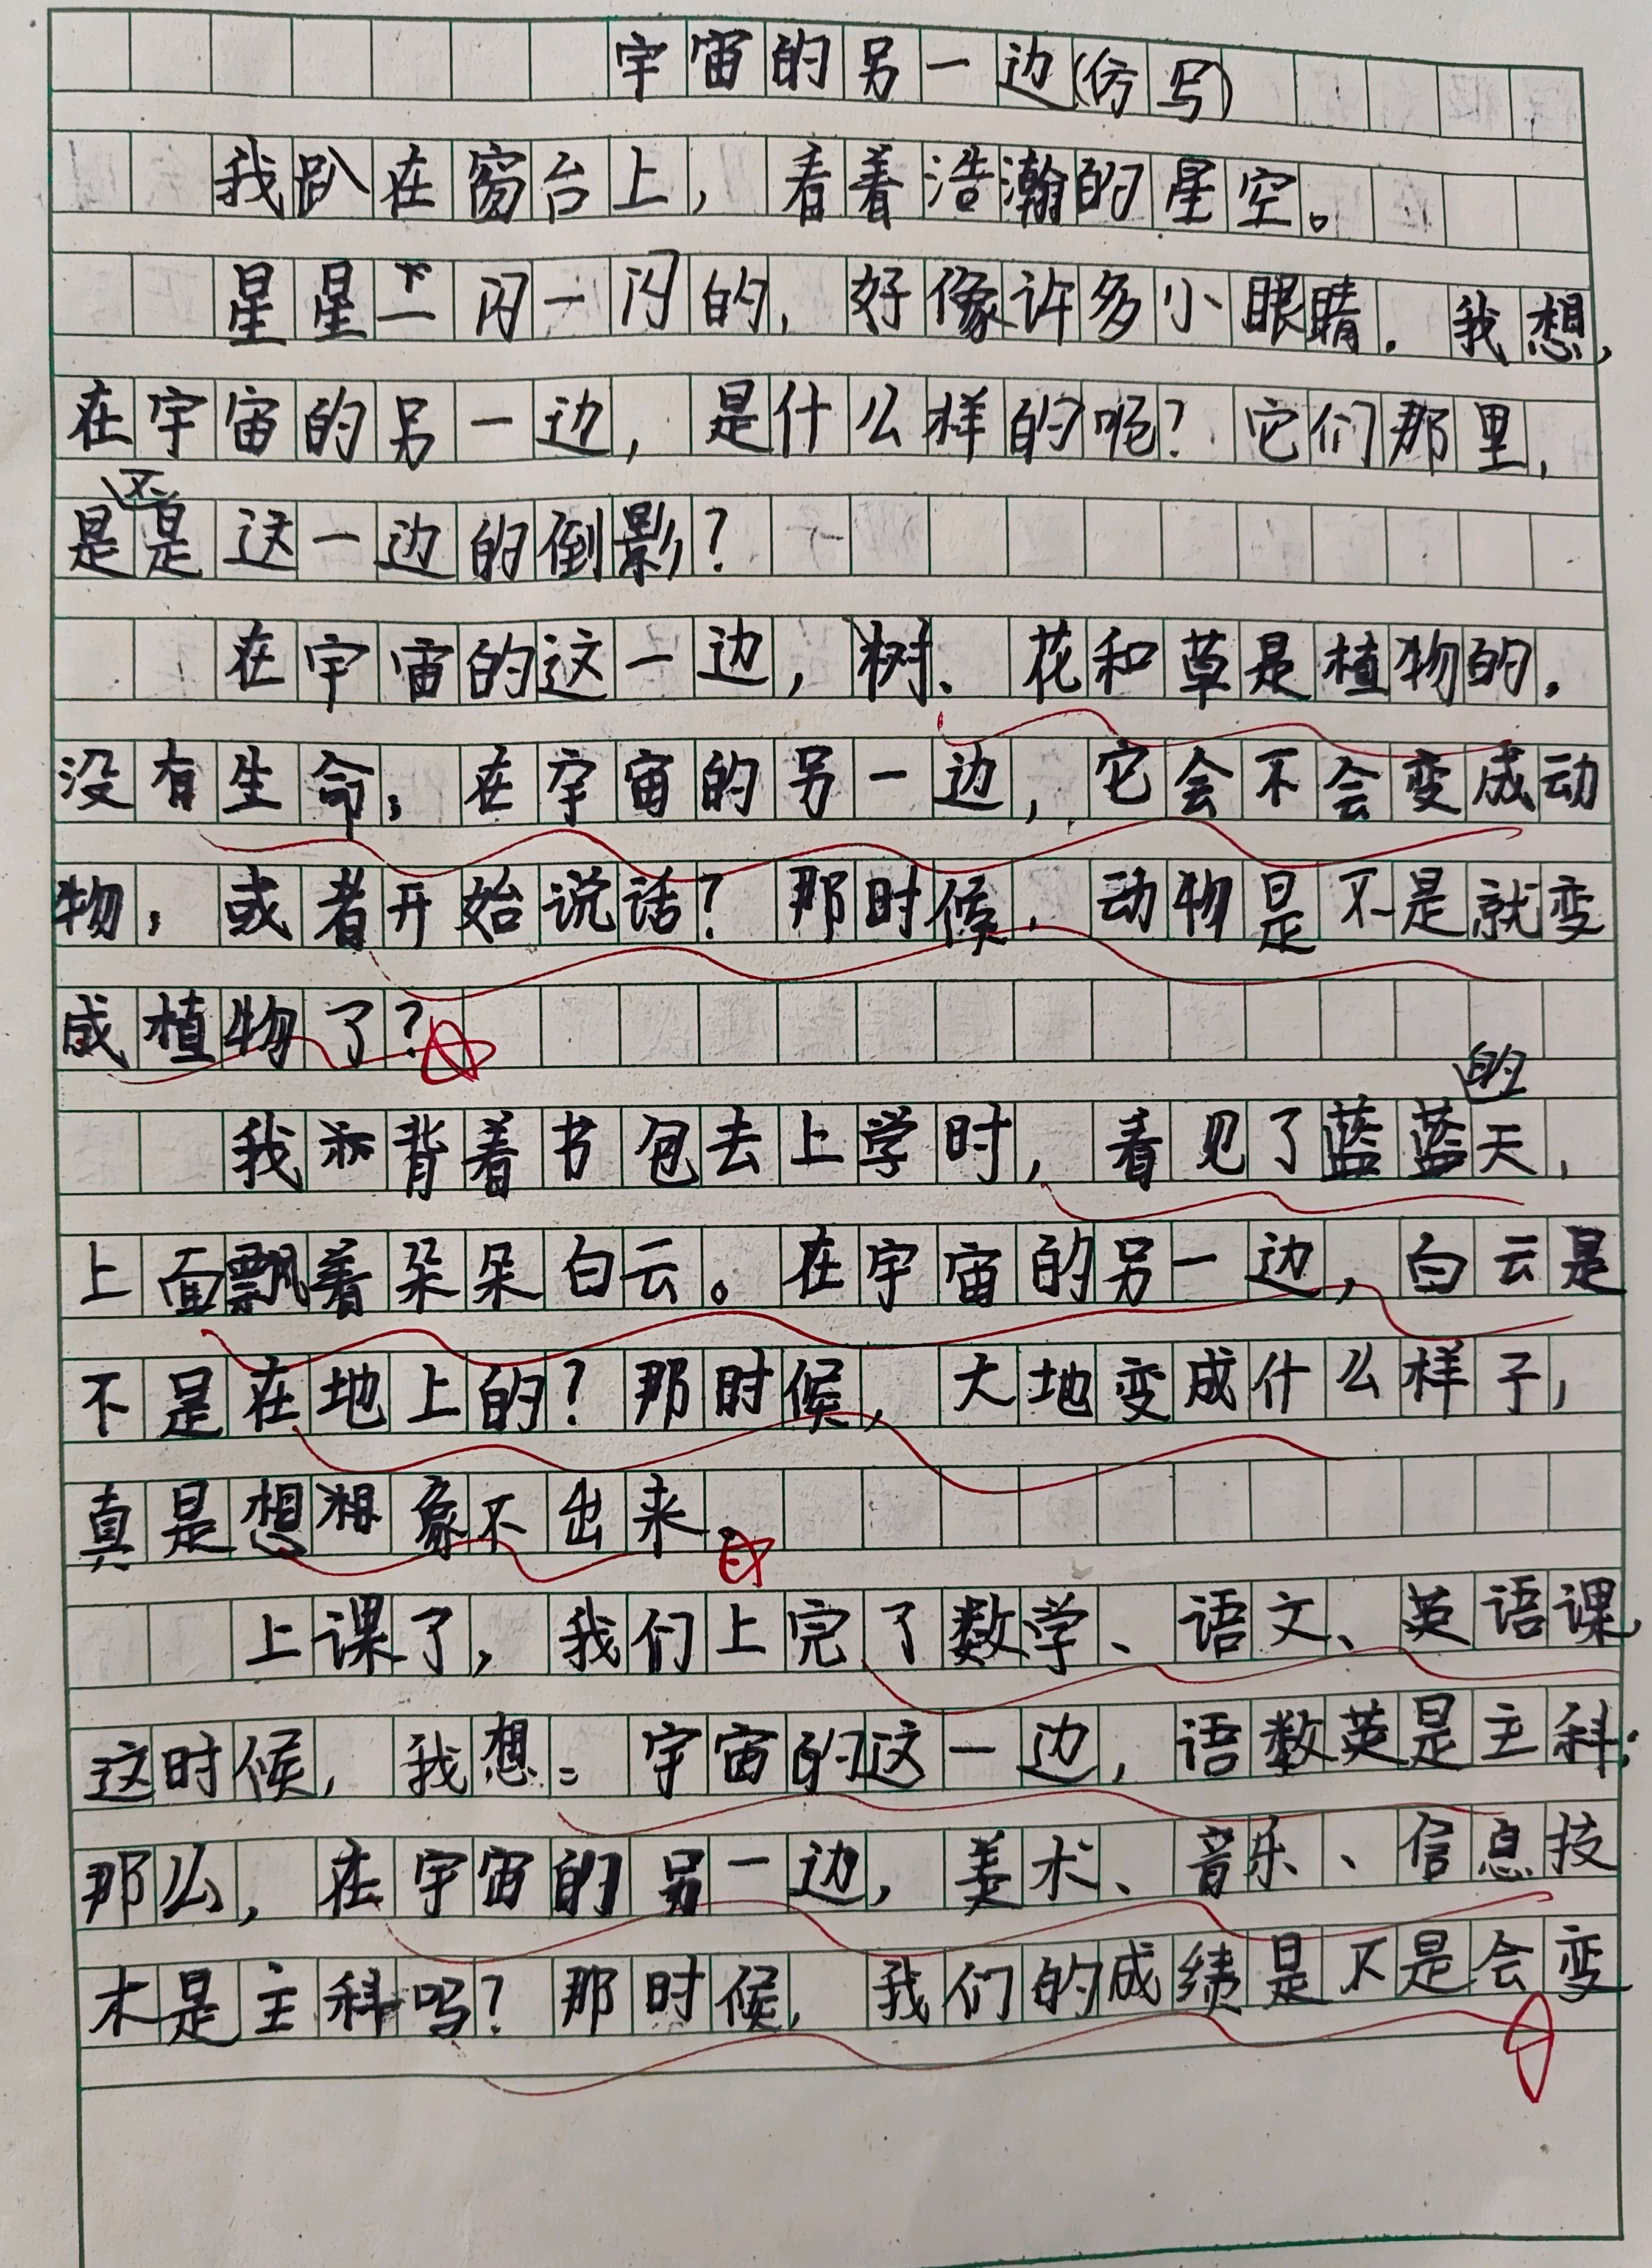 宇宙的另一边(仿写)
我趴在窗台上，看着浩瀚的星空。
星星一闪一闪的，好像许多小眼睛。我想，
在宇宙的另一边，是什么样的呢？它们那里，
是不是这一边的倒影？
在宇宙的这一边，树、花和草是植物的，
没有生命；在宇宙的另一边，它会不会变成动
物，或者开始说话？那时候，动物是不是就变
成植物了？
我背着书包去上学时，看见了蓝蓝的天，
上面飘着朵朵白云。在宇宙的另一边，白云是
不是在地上的？那时候，大地变成什么样子，
真是想象不出来。
上课了，我们上完了数学、语文、英语课，
这时候，我想：宇宙的这一边，语数英是主科；
那么，在宇宙的另一边，美术、音乐、信息技
术是主科吗？那时候，我们的成绩是不是会变